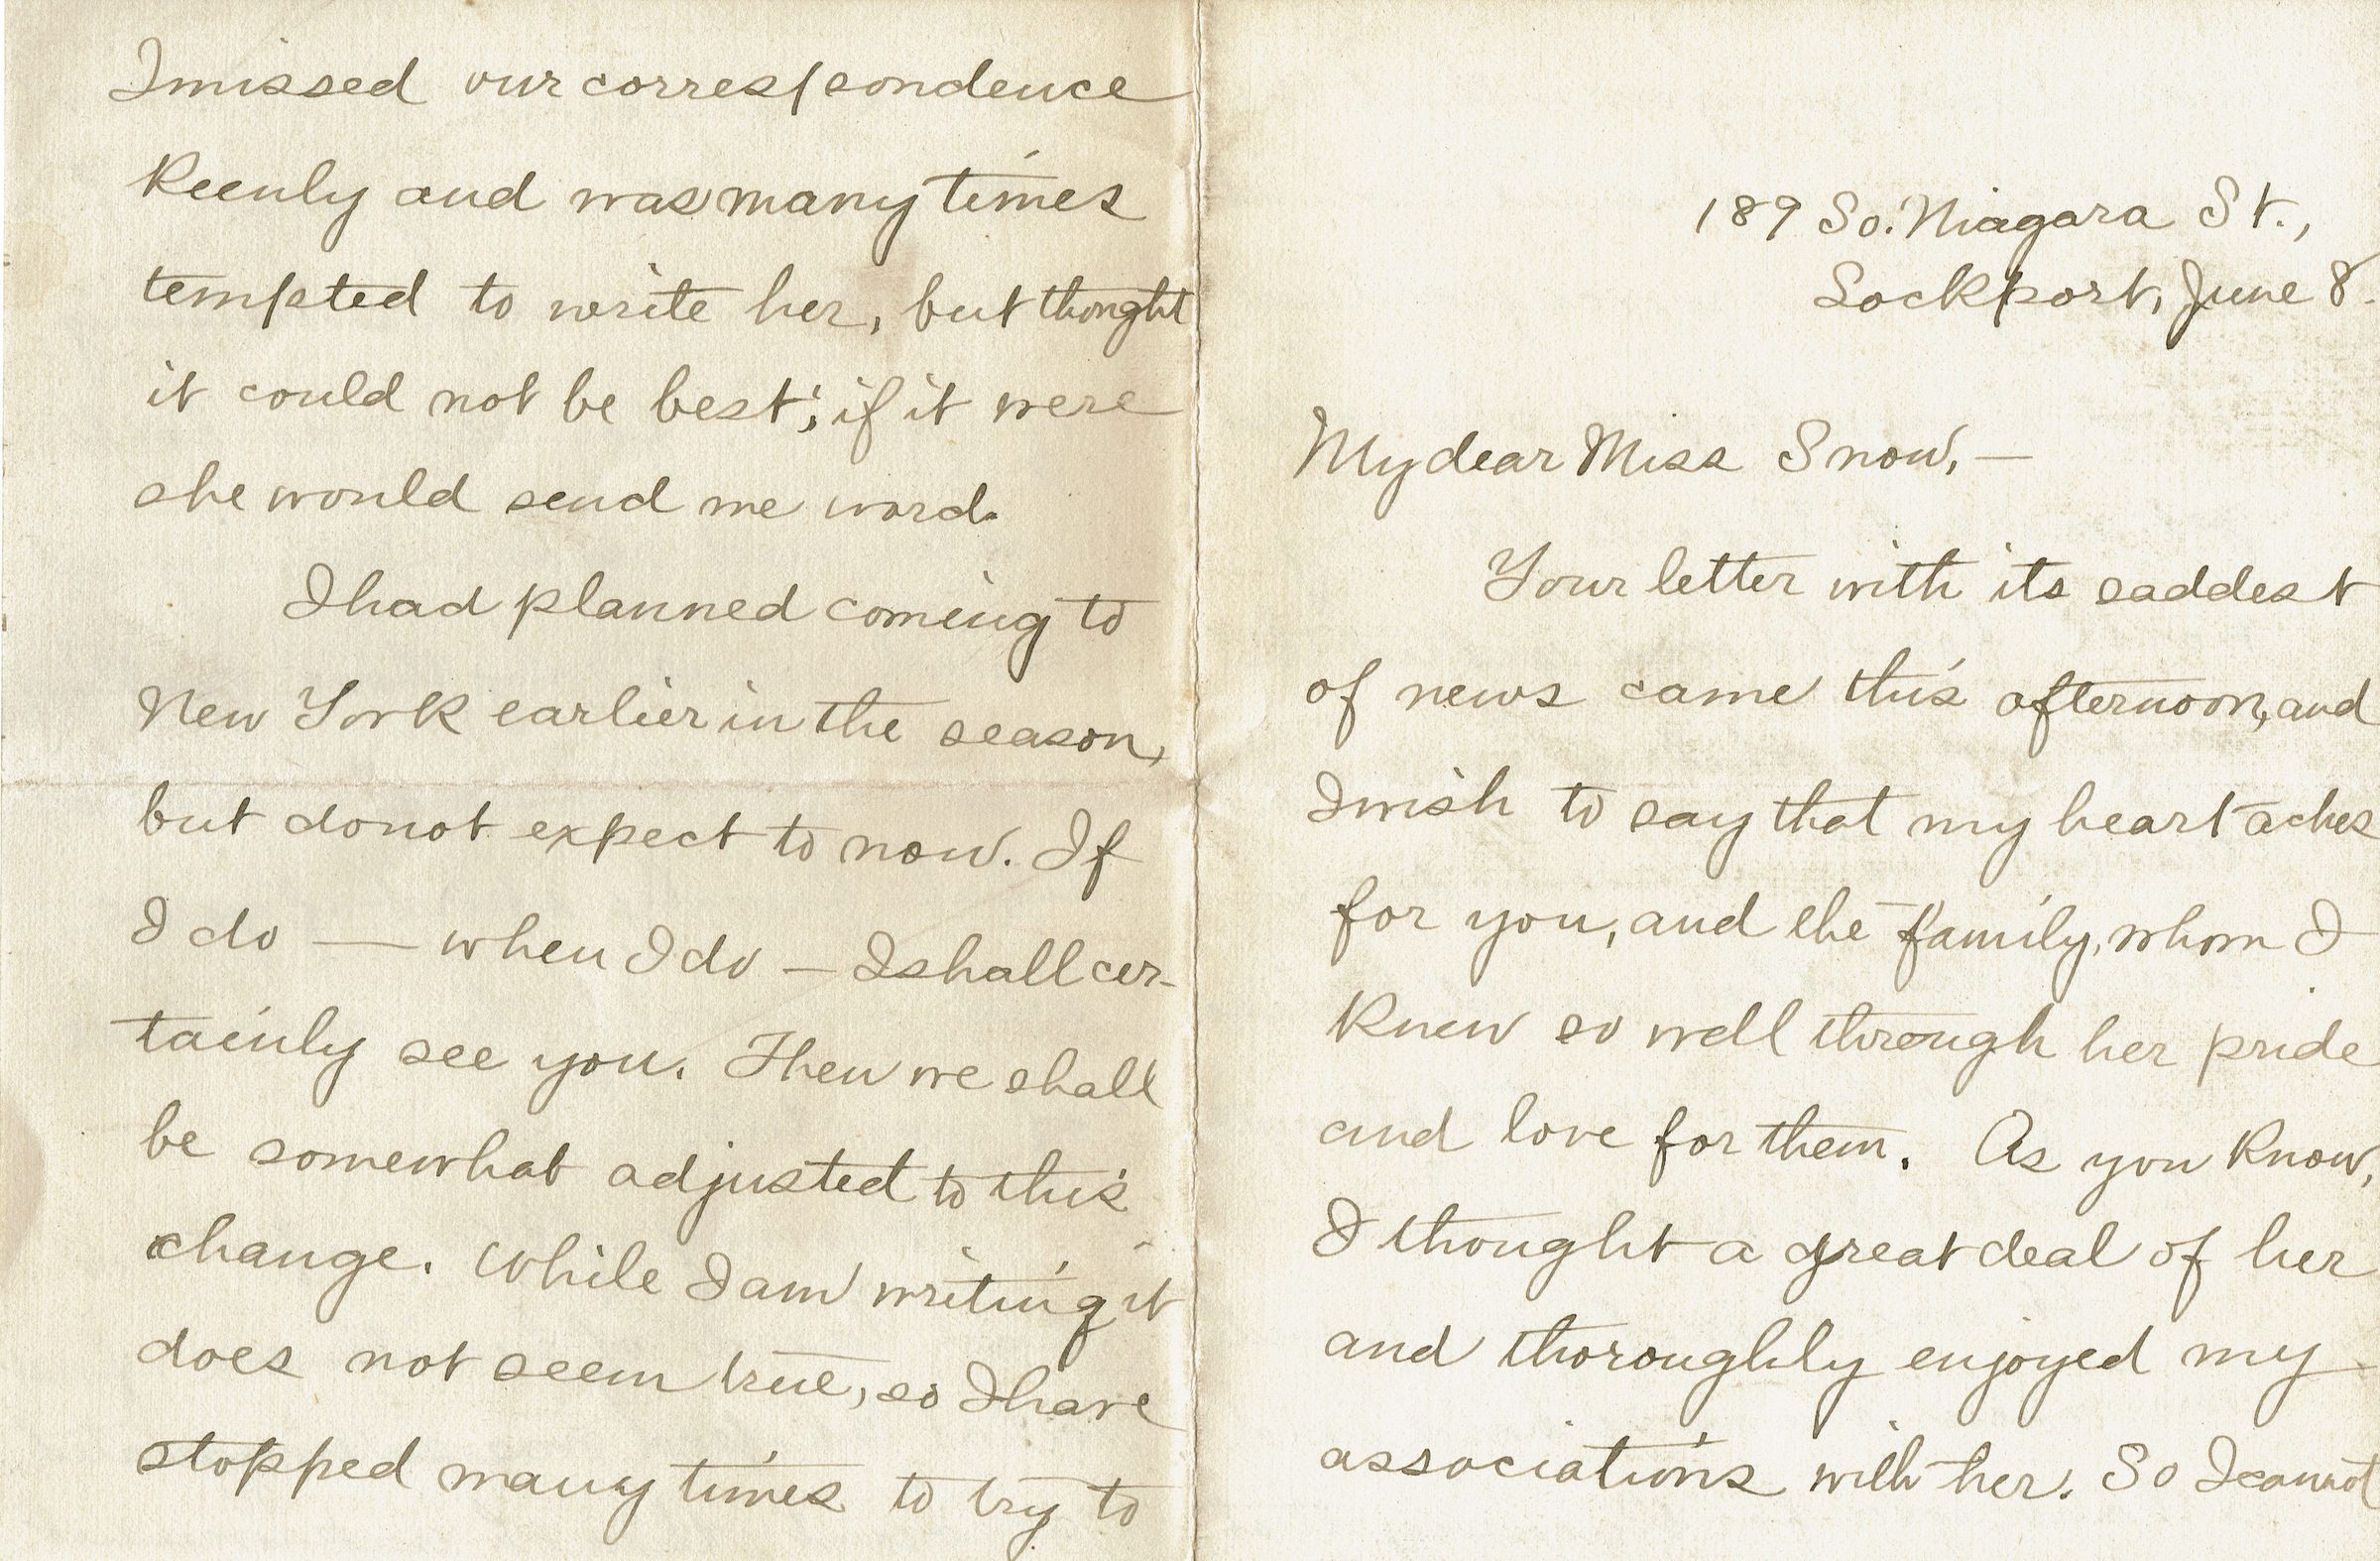 189 So. Niagara St.,
Lockport, June 8.
My dear Miss Snow, —
Your letter with its saddest
of news came this afternoon, and
I wish to say that my heart aches
for you, and the family, whom I
knew so well through her pride
and love for them. As you know,
I thought a great deal of her
and thoroughly enjoyed my
associations with her. So I cannot
I missed our correspondence
keenly and was many times
tempted to write her, but thought
it could not be best; if it were
she would send me word.
I had planned coming to
New York earlier in the season,
but do not expect to now. If
I do — when I do — I shall cer-
tainly see you. Then we shall
be somewhat adjusted to this
change. While I am writing it
does not seem true, so I have
stopped many times to try to